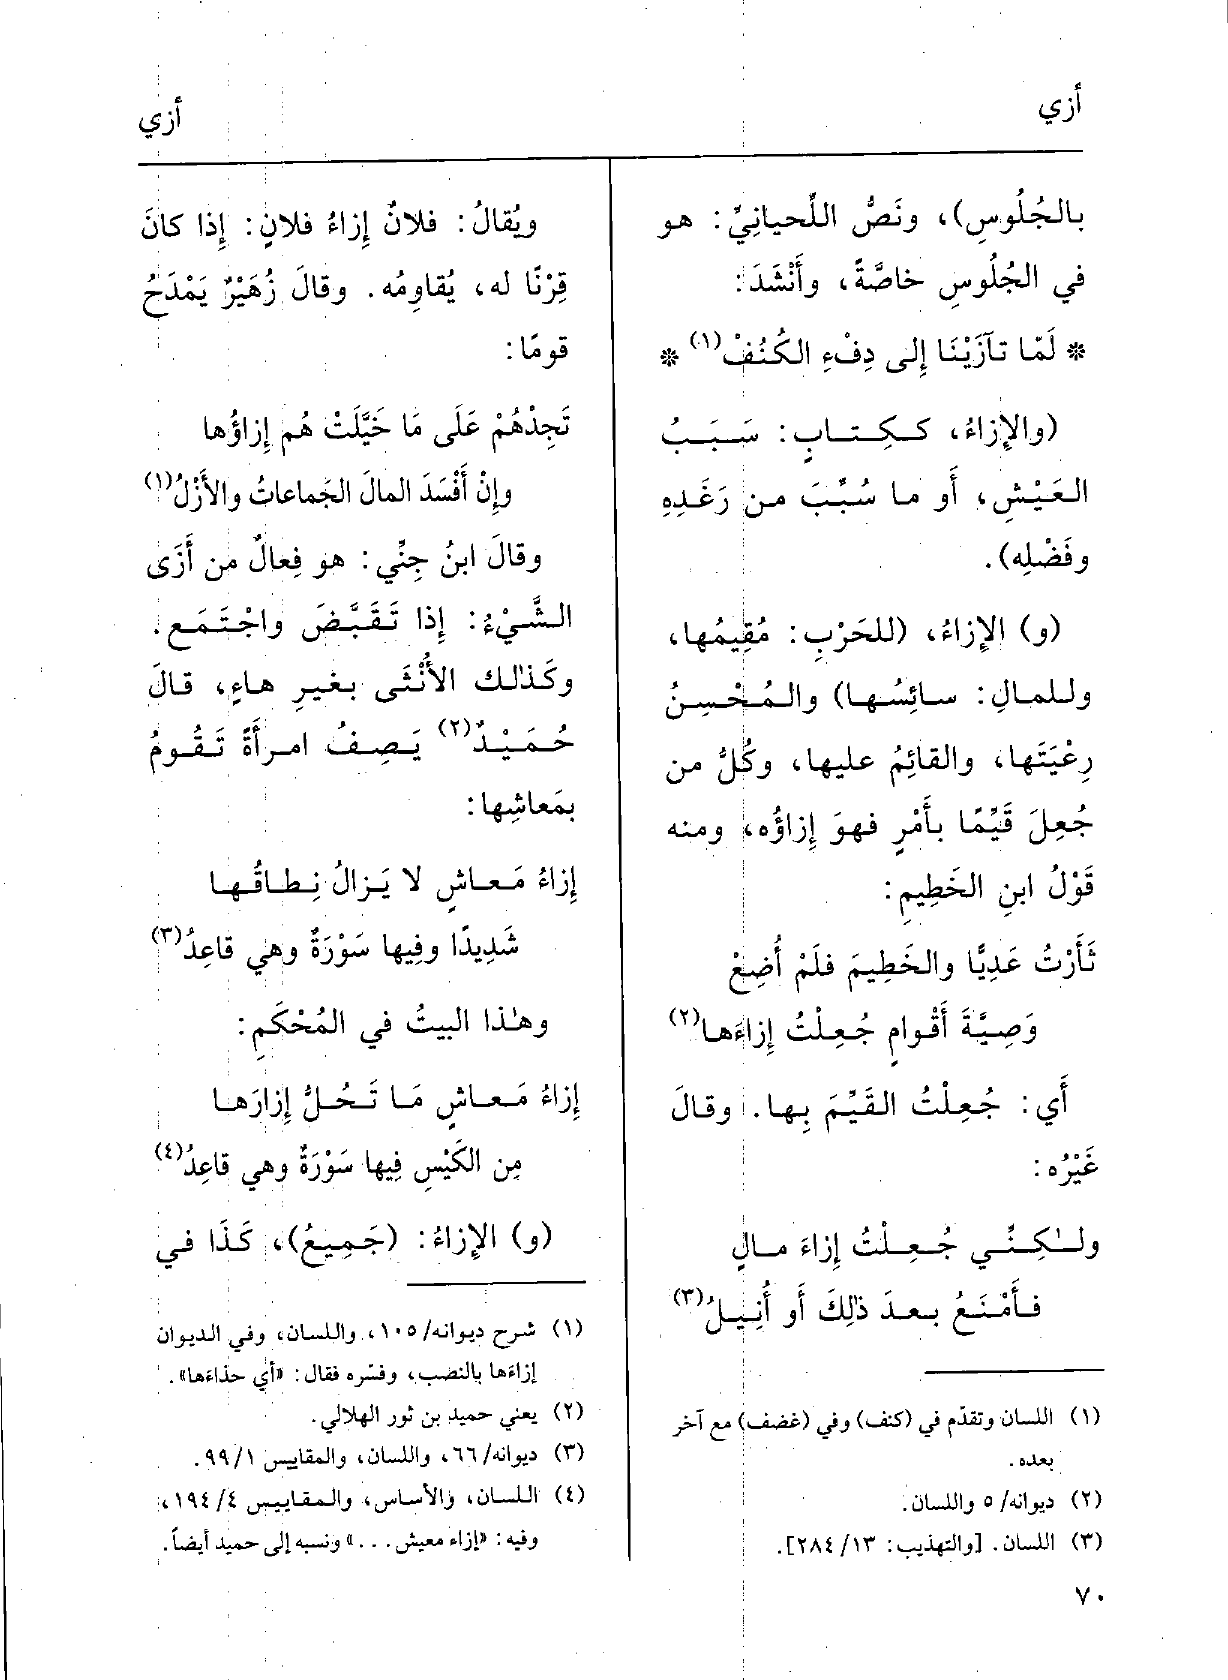 أزي
أزي
بالجُلُوسِ)، ونَصُّ اللِّحيانِيِّ: هو
في الجُلُوسِ خاصَّةً، وأَنْشَدَ:
* لَمّا تآزَيْنَا إِلى دِفْءِ الكُنُفْ(١) *
(والإِزاءُ، ككِتابٍ: سَبَبُ
العَيْشِ، أَو ما سُبِّبَ من رَغَدِهِ
وفَضْلِه).
(و) الإِزاءُ، (للحَرْبِ: مُقِيمُها،
وللمالِ: سائِسُها) والمُحْسِنُ
رِعْيَتَها، والقائِمُ عليها، وكُلُّ من
جُعِلَ قَيِّمًا بأَمْرٍ فهوَ إِزاؤُه، ومنه
قَوْلُ ابنِ الخَطِيمِ:
ثَأَرْتُ عَدِيًّا والخَطِيمَ فلَمْ أُضِعْ
وَصِيَّةَ أَقْوامٍ جُعِلْتُ إِزاءَها(٢)
أَي: جُعِلْتُ القَيِّمَ بِها. وقالَ
غَيْرُه:
ولٰكِنِّي جُعِلْتُ إِزاءَ مالٍ
فأَمْنَعُ بعدَ ذٰلِكَ أَو أُنِيلُ(٣)
(١) اللسان وتقدّم في (كنف) وفي (غضف) مع آخر
بعده.
(٢) ديوانه/ ٥ واللسان.
(٣) اللسان. [والتهذيب: ١٣/ ٢٨٤].
ويُقالُ: فلانٌ إِزاءُ فلانٍ: إِذا كانَ
قِرْنًا له، يُقاوِمُه. وقالَ زُهَيْرٌ يَمْدَحُ
قومًا:
تَجِدْهُمْ عَلَى مَا خَيَّلَتْ هُم إِزاؤُها
وإِنْ أَفْسَدَ المالَ الجَماعاتُ والأَزْلُ(١)
وقالَ ابنُ جِنِّي: هو فِعالٌ من أَزَى
الشَّيْءُ: إِذا تَقَبَّضَ واجْتَمَع.
وكَذٰلك الأُنْثَى بغيرِ هاءٍ، قالَ
حُمَيْدٌ(٢) يَصِفُ امرأَةً تَقُومُ
بمَعاشِها:
إِزاءُ مَعاشٍ لا يَزالُ نِطاقُها
شَدِيدًا وفِيها سَوْرَةٌ وهي قاعِدُ(٣)
وهٰذا البيتُ في المُحْكَمِ:
إِزاءُ مَعاشٍ مَا تَحُلُّ إِزارَها
مِن الكَيْسِ فِيها سَوْرَةٌ وهي قاعِدُ(٤)
(و) الإِزاءُ: (جَمِيعُ)، كَذَا في
(١) شرح ديوانه/ ١٠٥، واللسان، وفي الديوان
إزاءَها بالنصب، وفسّره فقال: «أي حذاءَها».
(٢) يعني حميد بن ثور الهلالي.
(٣) ديوانه/ ٦٦، واللسان، والمقاييس ١/ ٩٩.
(٤) اللسان، والأساس، والمقاييس ٤/ ١٩٤،
وفيه: «إزاء معيش...» ونسبه إلى حميد أيضاً.
٧٠